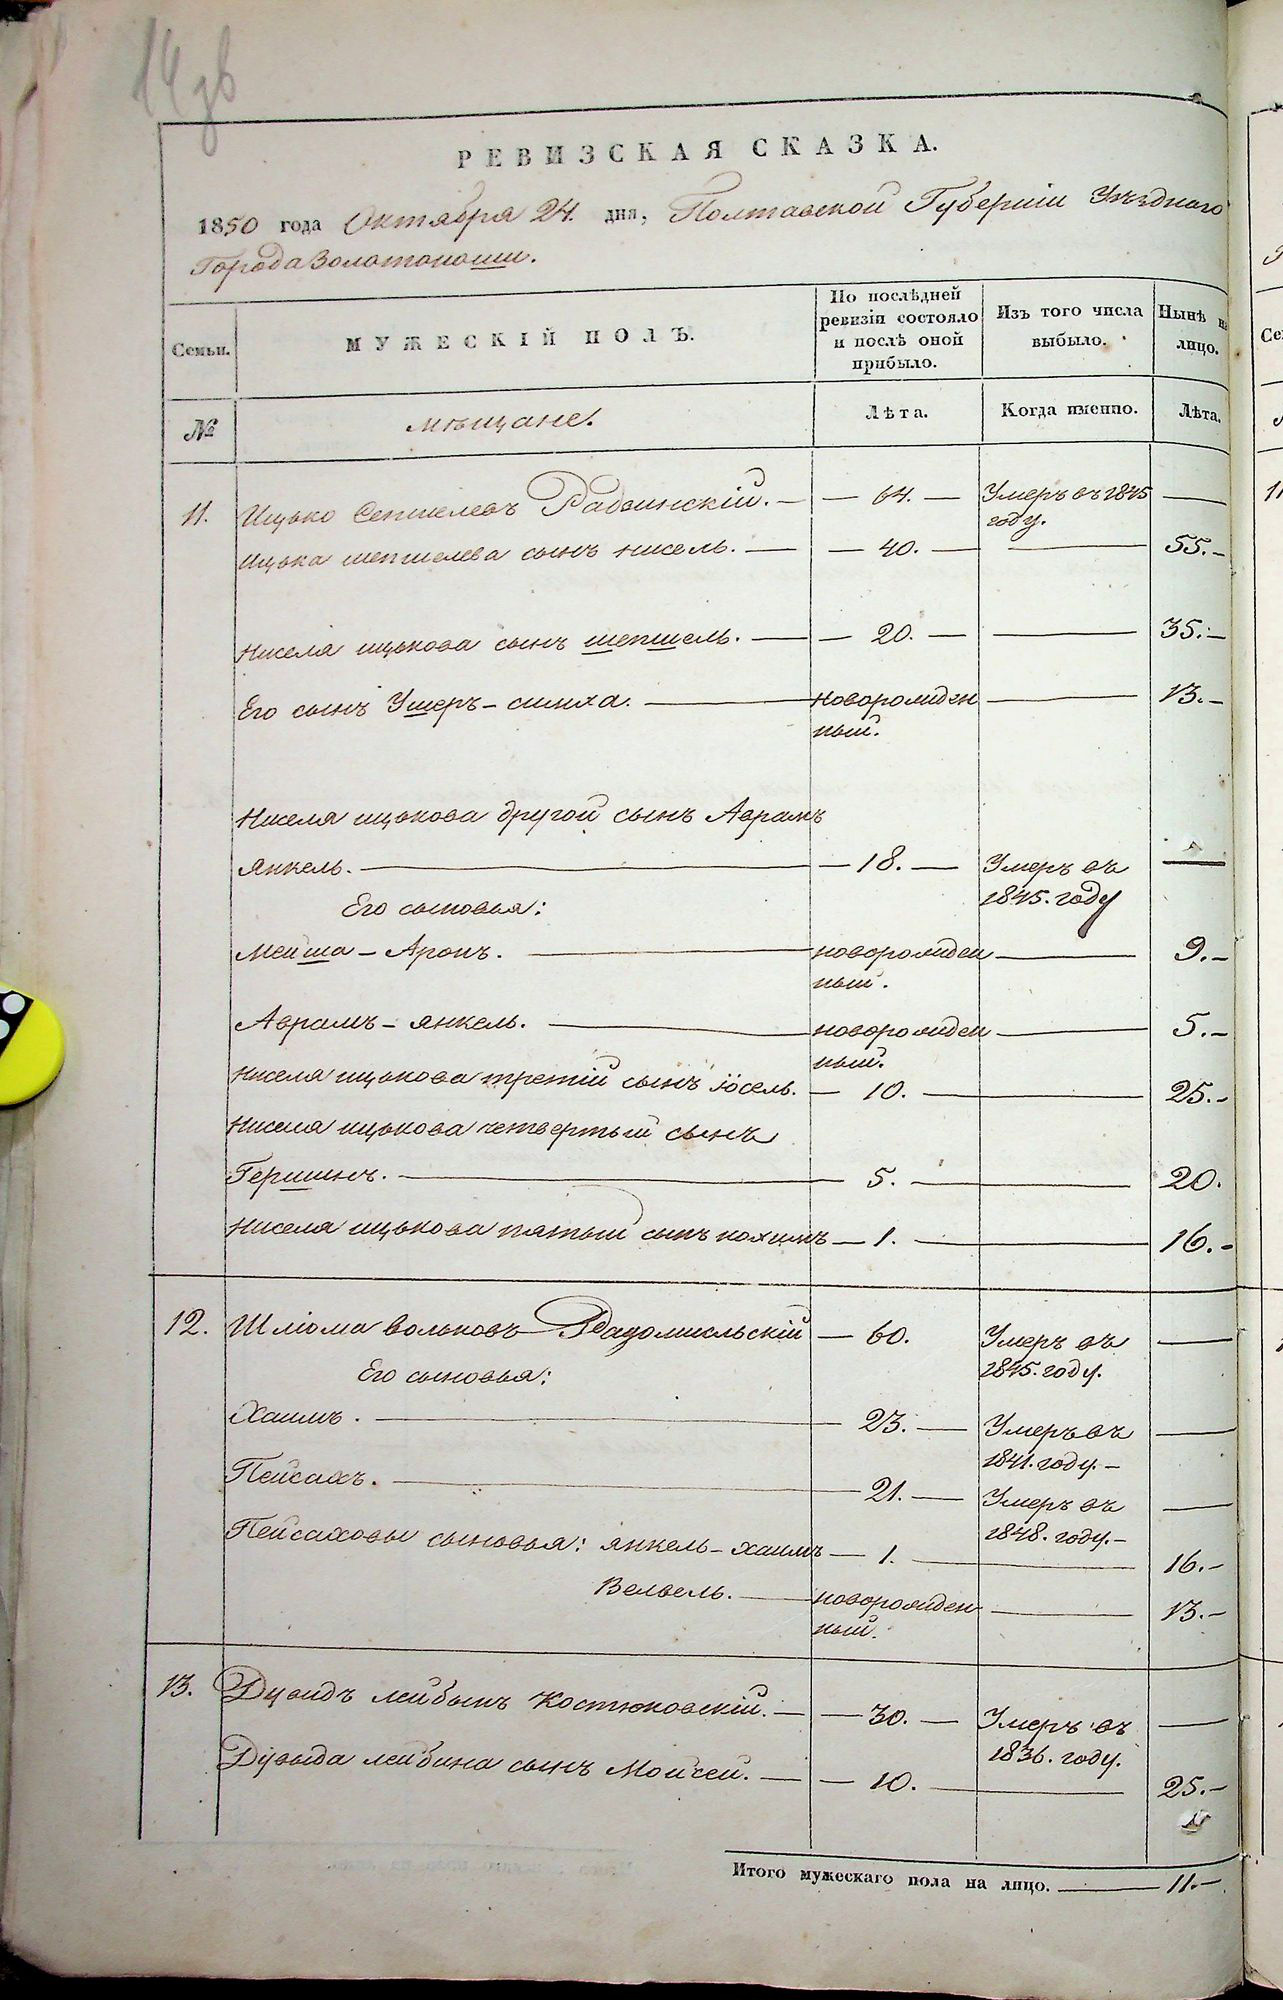 14 зв
РЕВИЗСКАЯ СКАЗКА.
1850 года Октября 24. дня, Полтавской Губерніи Уѣзднаго
Города Золотоноши.
Семьи.
МУЖЕСКІЙ ПОЛЪ.
По послѣдней ревизіи состояло и послѣ оной прибыло.
Изъ того числа выбыло.
Нынѣ на лицо.
№
мѣщане.
Лѣта.
Когда именно.
Лѣта.
11. Ицько Сепшелевъ Радвинскій. — 64. — Умеръ въ 1845 году. —
Ицька шепшелева сынъ нисель. — 40. — 55. —
Ниселя ицькова сынъ шепшель. — 20. — 35. —
Его сынъ Умеръ-симха. — новорожденный. — 13. —
Ниселя ицькова другой сынъ Аврамъ
янкель. — 18. — Умеръ въ 1845. году —
Его сыновья:
Мейша-Аронъ. — новорожденный. — 9. —
Аврамъ-янкель. — новорожденный. — 5. —
Ниселя ицькова третій сынъ іосель. — 10. — 25. —
Ниселя ицькова четвертый сынъ
Гершинъ. — 5. — 20.
Ниселя ицькова пятый сынъ нохимъ — 1. — 16. —
12. Шліома вольковъ Радомисльскій — 60. Умеръ въ 1845. году. —
Его сыновья:
Хаимъ. — 23. — Умеръ въ 1841. году. —
Пейсахъ. — 21. — Умеръ въ 1848. году. —
Пейсаховы сыновья: янкель-хаимъ — 1. — 16. —
Вельвель. — новорожденный. — 13. —
13. Дувидъ лейбынъ Костюковскій. — 30. — Умеръ въ 1836. году. —
Дувыда лейбина сынъ Мойсей. — 10. — 25. —
Итого мужескаго пола на лицо. — 11. —